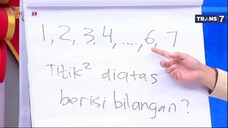 TRANS 7
1, 2, 3, 4, ...., 6, 7
Titik² diatas
berisi bilangan?